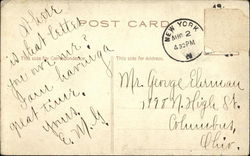 POST CARD
NEW YORK
AUG 2
4 30 PM
Where
is that letter
you owe me?
Am having a
great time.
Yours,
E. M. G.
Mr. George Eherman
N. High St.
Columbus,
Ohio.